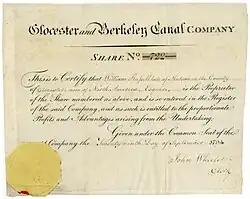 Glocester and Berkeley Canal Company
Share No. 722
This is to Certify that William Russell late of in the County
of and of North America, Esquire, is the Proprietor
of the Share numbered as above, and is so entered in the Register
of the said Company, and as such is entitled to the proportionate
Profits and Advantages arising from the Undertaking.
Given under the Common Seal of the
Company the Day of September
John Wheeler
Clerk